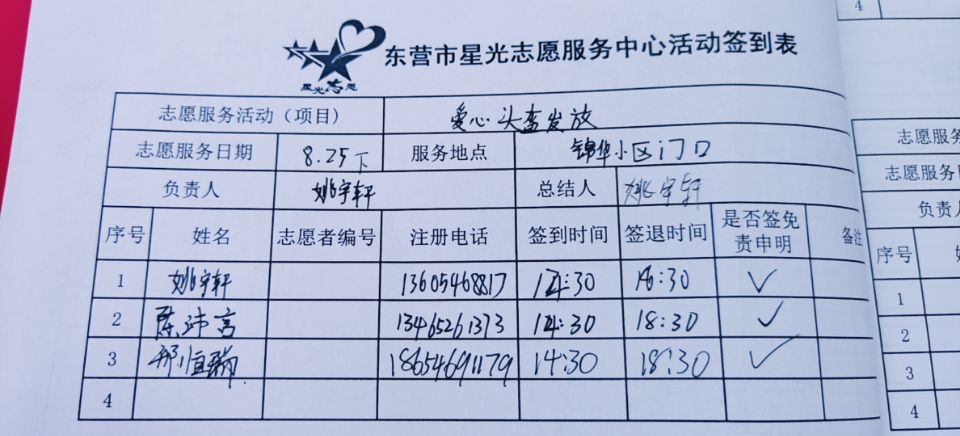 星光志愿
东营市星光志愿服务中心活动签到表
志愿服务活动（项目） 爱心头盔发放
志愿服务日期 8.25下 服务地点 锦华小区门口
负责人 姚宇轩 总结人 姚宇轩
序号 姓名 志愿者编号 注册电话 签到时间 签退时间 是否签免责申明 备注
1 姚宇轩 13605468817 14:30 18:30 ✓
2 陈沛言 13465261373 14:30 18:30 ✓
3 邢恒 18654691179 14:30 18:30 ✓
4
4
志愿服务
志愿服务
负责人
序号
1
2
3
4